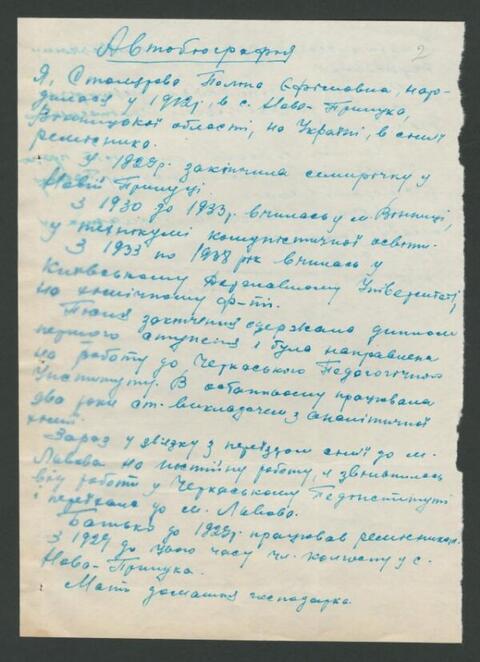 Автобіографія
2
Я, Столярова Поліна Єфремовна, нар-
дилася у 1912р. в с. Ново-Прилука,
Вінницької області, на Україні, в сімї
ремісника.
У 1929р. закінчила семирічку у
Новій Прилуці.
З 1930 до 1933р. вчилась у м. Вінниці,
у технікумі комуністичної освіти.
З 1933 по 1938 рік вчилась у
Київському Державному Університеті,
на хімічному ф-ті.
Після закінчення одержала диплом
першого ступеня і була направлена
на роботу до Черкаського Педагогічного
Інституту. В останньому працювала
два роки ст. викладачем з аналітичної
хімії.
Зараз у звязку з переїздом сімї до м.
Львова на постійну роботу, я звільнилась
від роботи у Черкаському Педінституті
і переїхала до м. Львова.
Батько до 1929р. працював ремісником.
З 1929 до цього часу чл. колгоспу у с.
Ново-Прилука.
Мати домашня господарка.